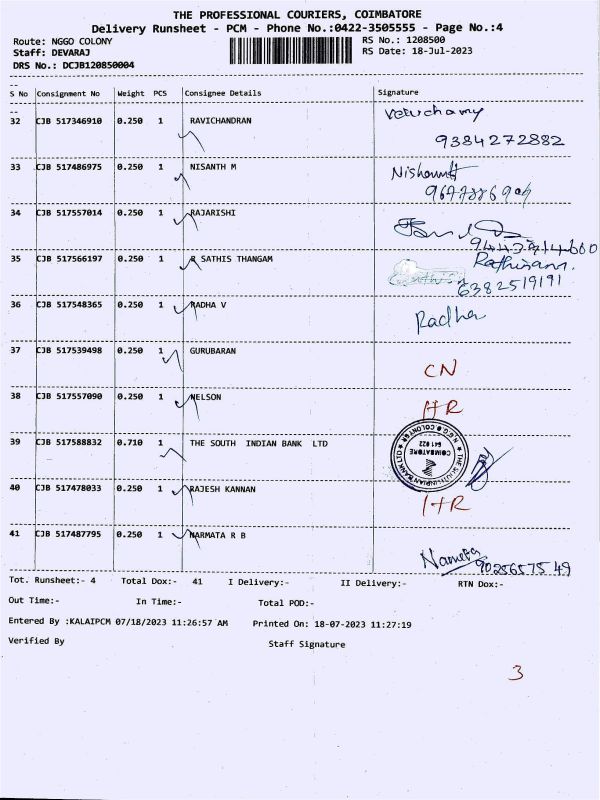 THE PROFESSIONAL COURIERS, COIMBATORE
Delivery Runsheet - PCM - Phone No.:0422-3505555 - Page No.:4
Route: NGGO COLONY
Staff: DEVARAJ
DRS No.: DCJB120850004
RS No.: 1208500
RS Date: 18-Jul-2023
S No Consignment No Weight PCS Consignee Details Signature
32 CJB 517346910 0.250 1 RAVICHANDRAN
9384272882
33 CJB 517486975 0.250 1 NISANTH M
34 CJB 517557014 0.250 1 RAJARISHI
35 CJB 517566197 0.250 1 R SATHIS THANGAM
6382519191
36 CJB 517548365 0.250 1 RADHA V Radha
37 CJB 517539498 0.250 1 GURUBARAN CN
38 CJB 517557090 0.250 1 NELSON HR
39 CJB 517588832 0.710 1 THE SOUTH INDIAN BANK LTD
THE SOUTH INDIAN BANK LTD
N.G.G.O. COLONY
COIMBATORE
641 022
40 CJB 517478033 0.250 1 RAJESH KANNAN HR
41 CJB 517487795 0.250 1 NARMATA R B
Tot. Runsheet:- 4 Total Dox:- 41 I Delivery:- II Delivery:- RTN Dox:-
Out Time:- In Time:- Total POD:-
Entered By :KALAIPCM 07/18/2023 11:26:57 AM Printed On: 18-07-2023 11:27:19
Verified By Staff Signature
3